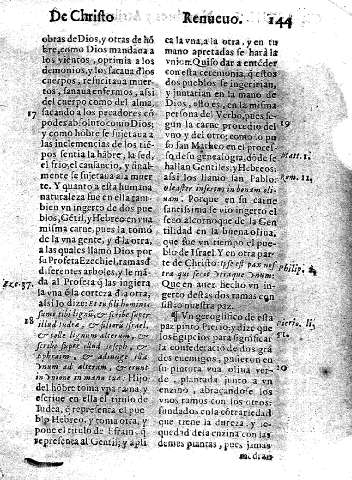 De Christo Renueuo. 144
obras de Dios, y otras de hō
bre, como Dios mandaua a
los vientos, oprimia a los
demonios, y los sacaua dlos
cuerpos, resucitaua muer
tos, sanaua enfermos, assi
del cuerpo como del alma,
17
sacando a los pecadores cō
poder absoluto como Dios;
y como hōbre se sujetaua a
las inclemencias de los tiē-
pos sentia la hābre, la sed,
el frio, el causancio, y final-
mente se sujetaua a la muer
te. Y quanto a esta humana
naturaleza fue en ella tam-
bien vn ingerto de dos pue
blos, Gētil, y Hebreo en vna
misma carne, pues la tomō
de la vna gente, y d la otra,
a las quales llamó Dios por
su Profeta Ezechiel, ramas d
diferentes arboles, y le mā-
da al Profeta q̄ las ingiera
Eze. 37.
la vna ē la corteza d la otra,
assi lo dize: Et tu fili hominis
18
sume tibi lignū, & scribe super
illud Iuda, & filiorū Israel,
& tolle lignum alterum, &
scribe super illud
Ephraim, & adiunge illa
vnum ad alterum, & erunt
in vnione in manu tua. Hijo
del hōbre toma vna rama y
escriue en ella el titulo de
Iudea, q̄ representa el pue
blo Hebreo, y toma otra, y
pone el titulo de Efrain, q̄
representa al Gentil, y apli
ca la vna, a la otra, y en tu
mano apretadas se hará la
vnion. Quiso dar a entēder
con esta ceremonia, q̄ estos
dos pueblos se ingeririan,
y juntarian en la mano de
Dios, esto es, en la misma
persona del Verbo, pues se-
gun la carne procedio del
19
vno y del otro; como lo pu
so san Matheo en el proces-
so de su genealogia, dōde se
Matt. 1.
hallan Gentiles, y Hebreos;
assi los llamó san Pablo:
Rom. 11.
oleaster insertus in bonam oli-
uam. Porque en su carne
santissima se vio ingerto el
seco alcornoque de la Gen-
tilidad en la buena oliua,
que fue vn tiempo el pue-
blo de Israel Y en otra parte
de Christo: ipse est pax nos
Philip. 2.
tra qui fecit vtraque vnum.
Que en auer hecho vn inger-
to destas dos ramas con
sistio nuestra paz.
¶ Vn geroglifico de esta
paz pinto Pierio, y dize que
Pierio. li.
los Egipcios para significar
la confederacion de dos grā
des enemigos, pusieron en
su pintura vna oliua ver-
20
de, plantada junto a vn
enzino, abraçandose los
vnos ramos con los otros:
fundados en la cōtrariedad
que tiene la dureza, y se-
quedad de la enzina con las
demas plantas, pues jamas